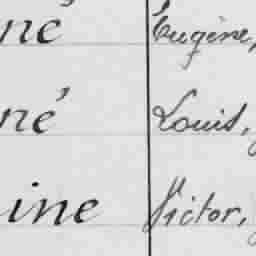 né Eugène,
né Louis,
ine Victor,